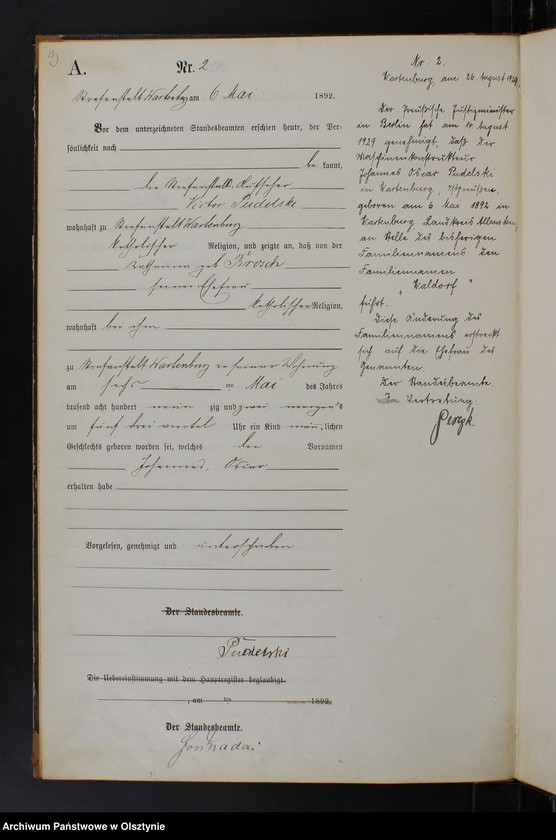 3
A.
Nr. 2
Strafanstalt Wartenburg am 6 Mai 1892.
Vor dem unterzeichneten Standesbeamten erschien heute, der Per-
sönlichkeit nach
be kannt,
der Strafanstalts-
Victor Pudelski
wohnhaft zu Strafanstalt Wartenburg
katholischer Religion, und zeigte an, daß von der
Katharina geb Brosch
seiner Ehefrau
katholischer Religion,
wohnhaft bei ihm
zu Strafanstalt Wartenburg in seiner Wohnung
am sechs ten Mai des Jahres
tausend acht hundert neun zig und zwei morgens
um fünf drei viertel Uhr ein Kind männlichen
Geschlechts geboren worden sei, welches die Vornamen
Johannes, Oscar
erhalten habe
Vorgelesen, genehmigt und unterschrieben
Der Standesbeamte.
Pudelski
Die Uebereinstimmung mit dem Hauptregister beglaubigt.
, am ten 1892.
Der Standesbeamte.
Nr. 2.
Wartenburg, am 26. August 1929
Der Preußische Justizminister
in Berlin hat am 14 August
1929 genehmigt, daß der
Maschinenkonstrukteur
Johannes Oscar Pudelski
in Wartenburg, Ostpreußen,
geboren am 6. Mai 1892 in
Wartenburg Landkreis Allenstein,
an Stelle des bisherigen
Familiennamens den
Familiennamen
"Waldorf"
führt.
Diese Änderung des
Familiennamens erstreckt
sich auf die Ehefrau des
Genannten.
Der Standesbeamte.
In Vertretung:
Archiwum Państwowe w Olsztynie